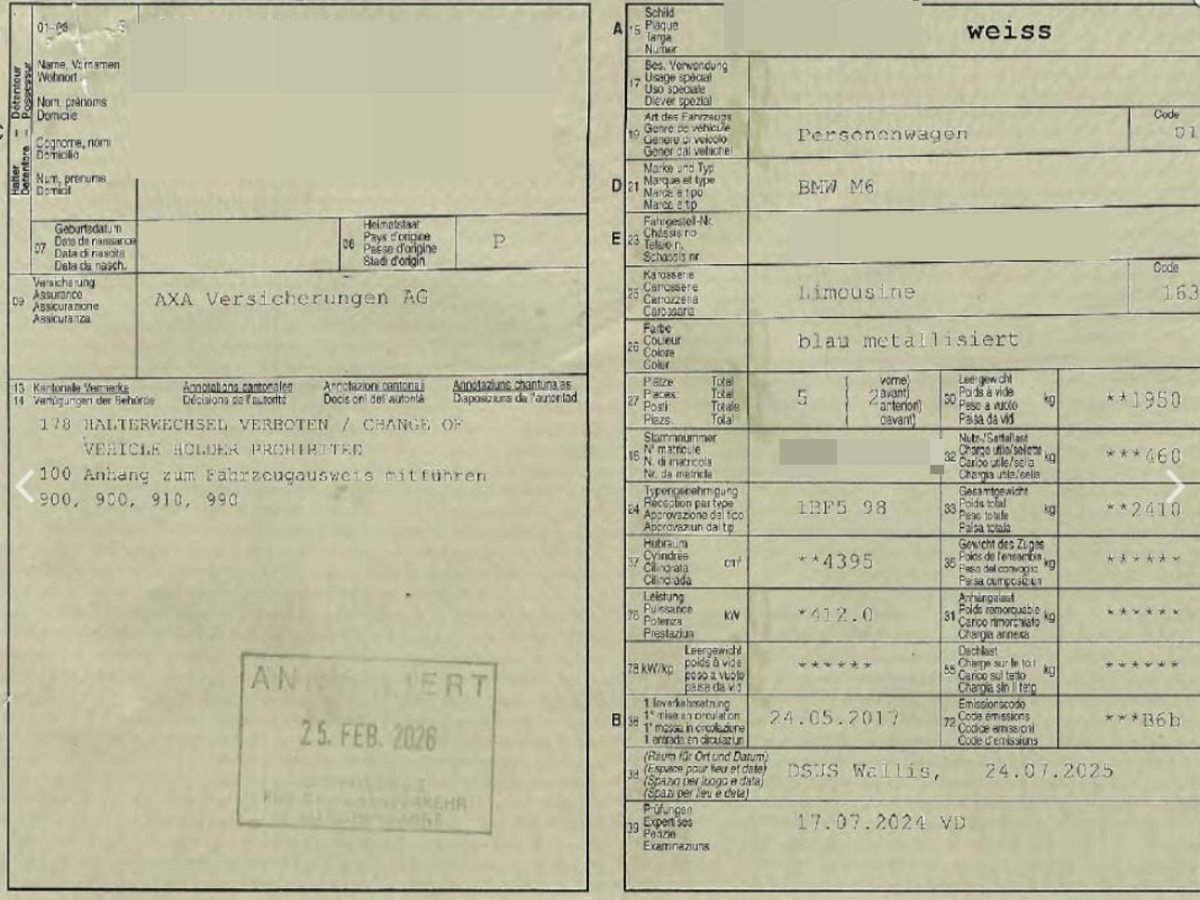 01-06
Halter – Détenteur
Detentore – Possessur
Name, Vornamen
Wohnort
Nom, prénoms
Domicile
Cognome, nomi
Domicilio
Num, prenums
Domicil
07 Geburtsdatum
Date de naissance
Data di nascita
Data da nasch.
08 Heimatstaat
Pays d'origine
Paese d'origine
Stadi d'origin
P
09 Versicherung
Assurance
Assicurazione
Assicuranza
AXA Versicherungen AG
13 Kantonale Vermerke Annotations cantonales Annotazioni cantonali Annotaziuns chantunalas
14 Verfügungen der Behörde Décisions de l'autorité Decisioni dell'autorità Disposiziuns da l'autoritad
178 HALTERWECHSEL VERBOTEN / CHANGE OF
VEHICLE HOLDER PROHIBITED
100 Anhang zum Fahrzeugausweis mitführen
900, 900, 910, 990
25. FEB. 2026
A 15 Schild
Plaque
Targa
Numer
weiss
17 Bes. Verwendung
Usage spécial
Uso speciale
Diever spezial
19 Art des Fahrzeugs
Genre de véhicule
Genere di veicolo
Gener dal vehichel
Personenwagen
Code
01
D 21 Marke und Typ
Marque et type
Marca e tipo
Marca e tip
BMW M6
E 23 Fahrgestell-Nr.
Châssis no
Telaio n.
Schassis nr.
25 Karosserie
Carrosserie
Carrozzeria
Carossaria
Limousine
Code
163
26 Farbe
Couleur
Colore
Colur
blau metallisiert
27 Plätze: Total
Places: Total
Posti: Totale
Plazs: Total
5 ( 2 )
vorne)
avant)
anteriori)
davant)
30 Leergewicht
Poids à vide
Peso a vuoto
Paisa da vid
kg
**1950
18 Stammnummer
N° matricule
N. di matricola
Nr. da matricla
32 Nutz-/Sattellast
Charge utile/sellette
Carico utile/sella
Chargia utila/sella
kg
***460
24 Typengenehmigung
Réception par type
Approvazione del tipo
Approvaziun dal tip
1BF5 98
33 Gesamtgewicht
Poids total
Peso totale
Paisa totala
kg
**2410
37 Hubraum
Cylindrée
Cilindrata
Cilindrada
cm³
**4395
35 Gewicht des Zuges
Poids de l'ensemble
Peso del convoglio
Paisa cumposiziun
kg
******
76 Leistung
Puissance
Potenza
Prestaziun
kW
*412.0
31 Anhängelast
Poids remorquable
Carico rimorchiato
Chargia annexa
kg
******
78 kW/kg Leergewicht
poids à vide
peso a vuoto
paisa da vid
******
55 Dachlast
Charge sur le toit
Carico sul tetto
Chargia sin il tetg
kg
******
B 36 1. Inverkehrsetzung
1re mise en circulation
1a messa in circolazione
1. entrada en circulaziun
24.05.2017
72 Emissionscode
Code émissions
Codice emissioni
Code d'emissiuns
***B6b
38 (Raum für Ort und Datum)
(Espace pour lieu et date)
(Spazio per luogo e data)
(Spazi per lieu e data)
DSUS Wallis, 24.07.2025
39 Prüfungen
Expertises
Perizie
Examinaziuns
17.07.2024 VD